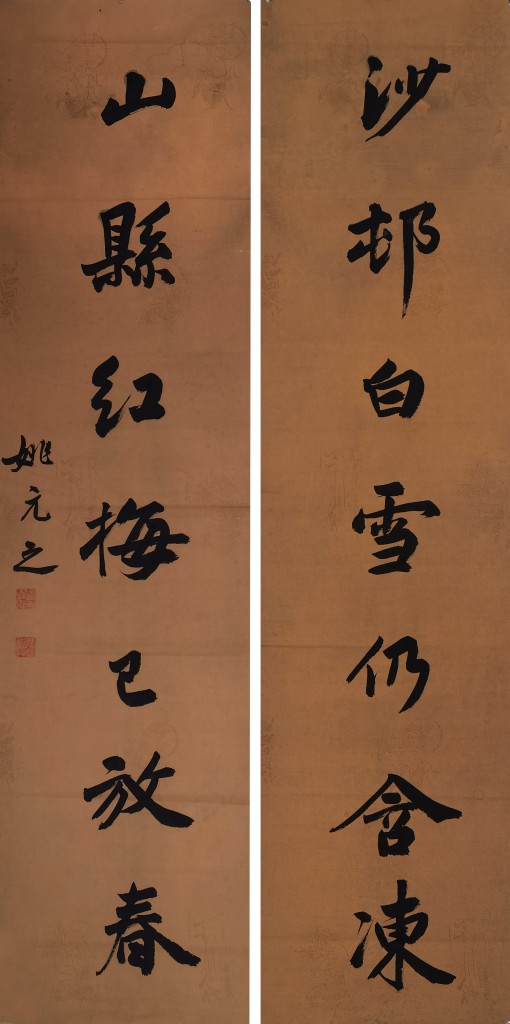 沙邨白雪仍含凍
山縣红梅已放春
姚元之